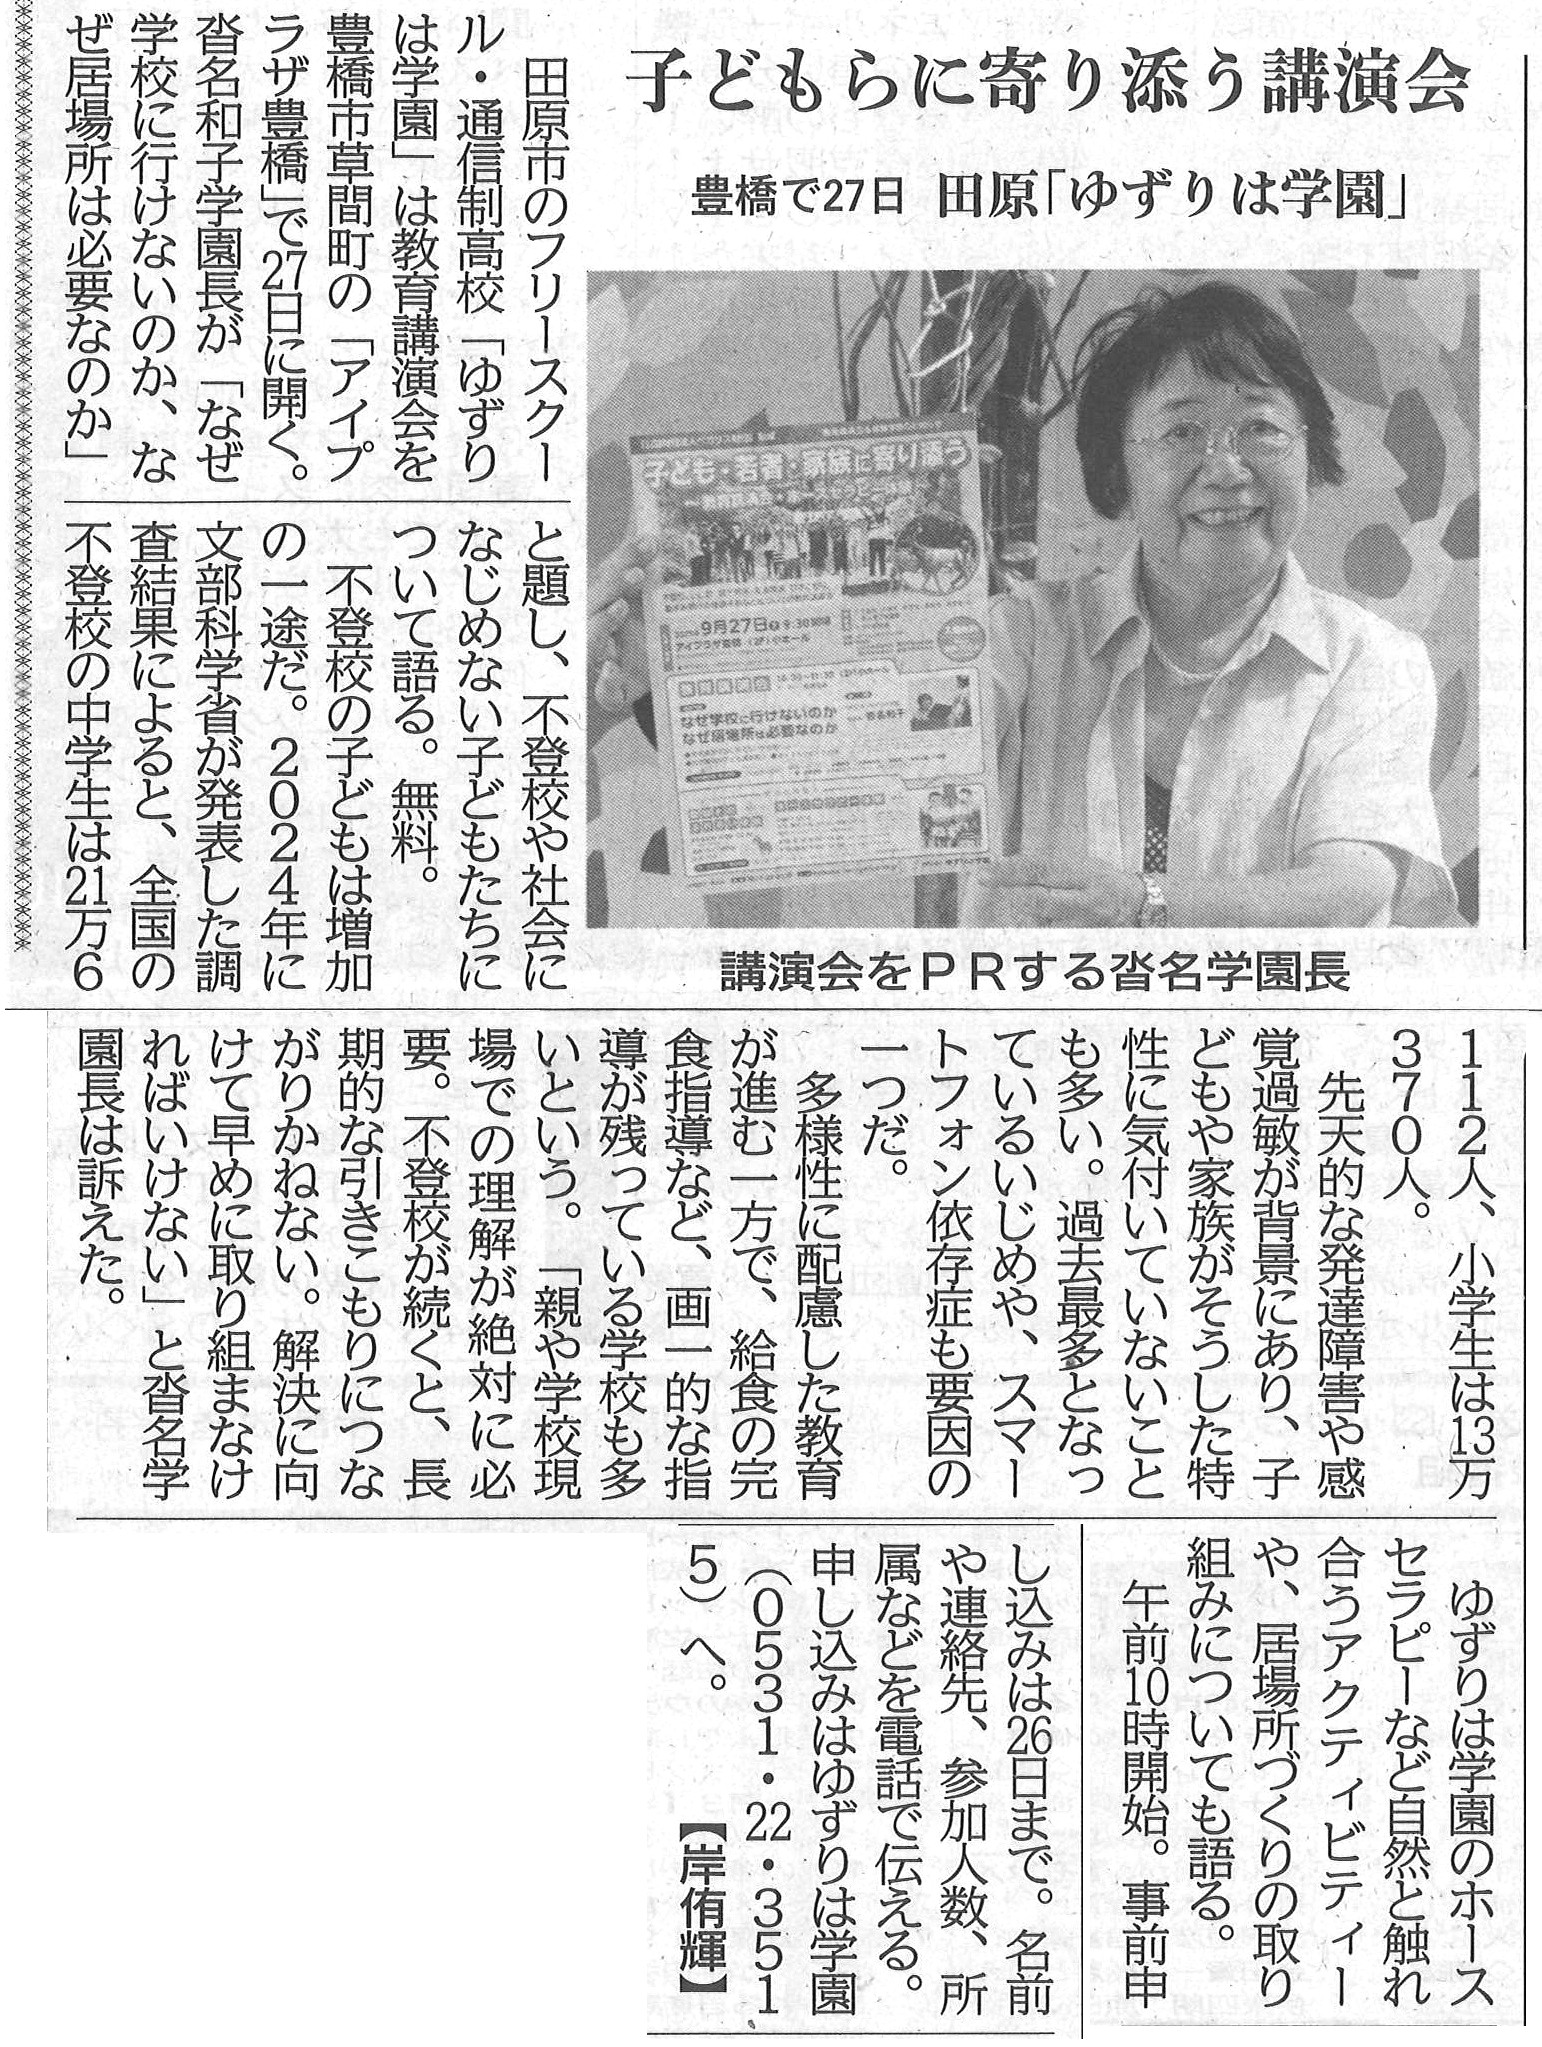 子どもらに寄り添う講演会
豊橋で27日 田原「ゆずりは学園」
田原市のフリースクー
ル・通信制高校「ゆずり
は学園」は教育講演会を
豊橋市草間町の「アイプ
ラザ豊橋」で27日に開く。
沓名和子学園長が「なぜ
学校に行けないのか、な
ぜ居場所は必要なのか」
と題し、不登校や社会に
なじめない子どもたちに
ついて語る。無料。
不登校の子どもは増加
の一途だ。2024年に
文部科学省が発表した調
査結果によると、全国の
不登校の中学生は21万6
子ども・若者・家族に寄り添う
9月27日
アイプラザ豊橋
なぜ学校に行けないのか
なぜ居場所は必要なのか
講演会をPRする沓名学園長
112人、小学生は13万
370人。
先天的な発達障害や感
覚過敏が背景にあり、子
どもや家族がそうした特
性に気付いていないこと
も多い。過去最多となっ
ているいじめや、スマー
トフォン依存症も要因の
一つだ。
多様性に配慮した教育
が進む一方で、給食の完
食指導など、画一的な指
導が残っている学校も多
いという。「親や学校現
場での理解が絶対に必
要。不登校が続くと、長
期的な引きこもりにつな
がりかねない。解決に向
けて早めに取り組まなけ
ればいけない」と沓名学
園長は訴えた。
ゆずりは学園のホース
セラピーなど自然と触れ
合うアクティビティー
や、居場所づくりの取り
組みについても語る。
午前10時開始。事前申
し込みは26日まで。名前
や連絡先、参加人数、所
属などを電話で伝える。
申し込みはゆずりは学園
(0531・22・351
5)へ。
【岸侑輝】